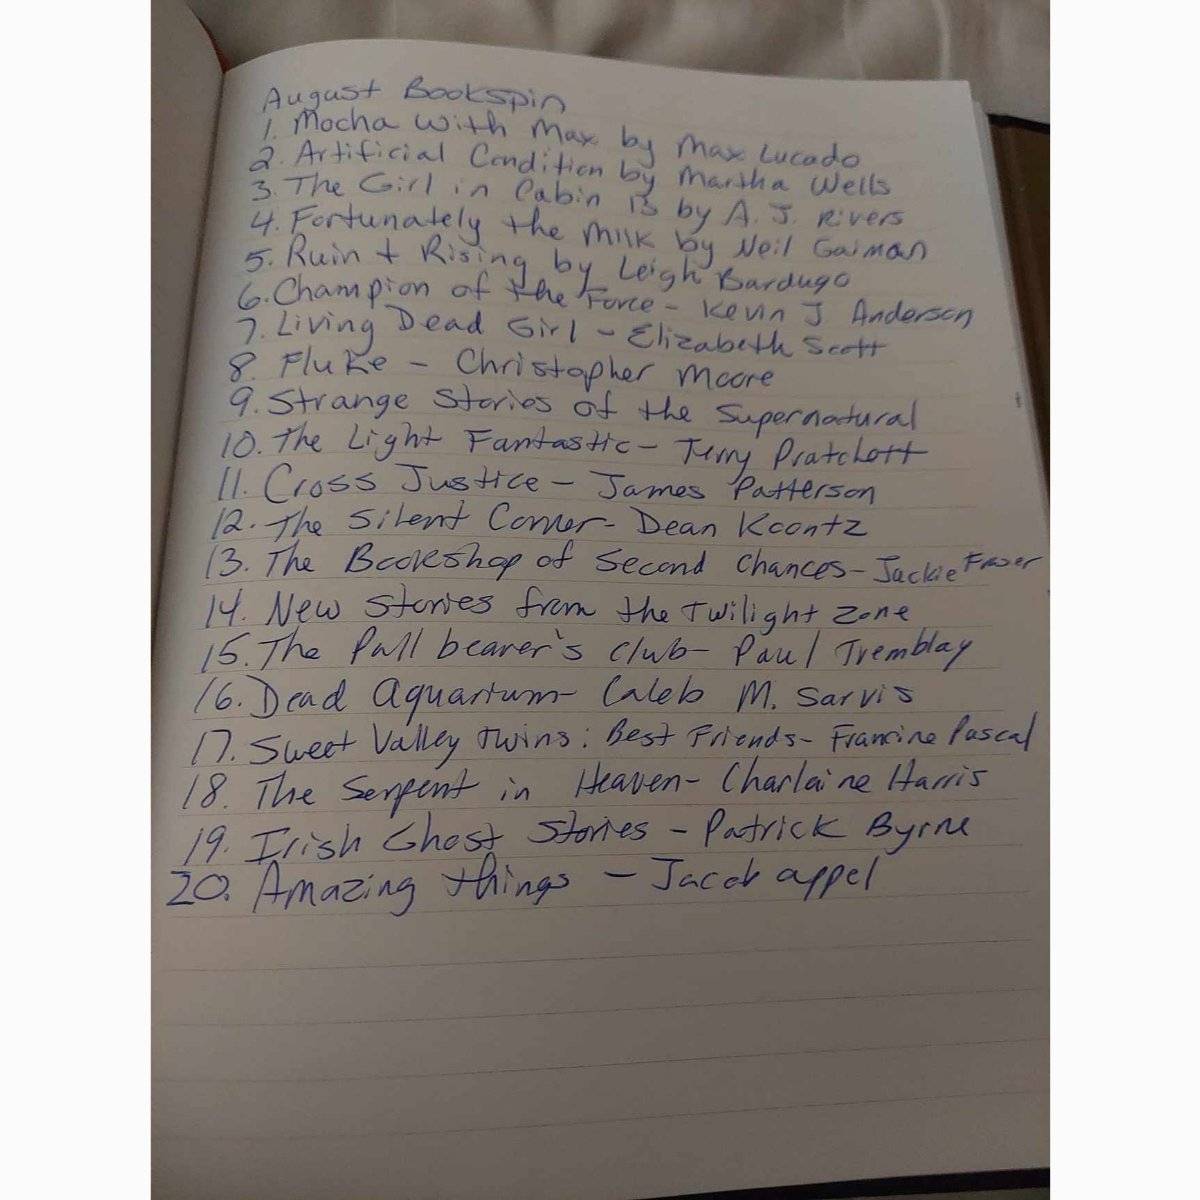 August Bookspin
1. Mocha with Max by Max Lucado
2. Artificial Condition by Martha Wells
3. The Girl in Cabin 13 by A. J. Rivers
4. Fortunately the Milk by Neil Gaiman
5. Ruin + Rising by Leigh Bardugo
6. Champion of the Force - Kevin J Anderson
7. Living Dead Girl - Elizabeth Scott
8. Fluke - Christopher Moore
9. Strange Stories of the Supernatural
10. The Light Fantastic - Terry Pratchett
11. Cross Justice - James Patterson
12. The Silent Corner - Dean Koontz
13. The Bookshop of Second Chances - Jackie Fraser
14. New Stories from the Twilight Zone
15. The Pallbearer's club - Paul Tremblay
16. Dead Aquarium - Caleb M. Sarvis
17. Sweet Valley Twins: Best Friends - Francine Pascal
18. The Serpent in Heaven - Charlaine Harris
19. Irish Ghost Stories - Patrick Byrne
20. Amazing things - Jacob appel